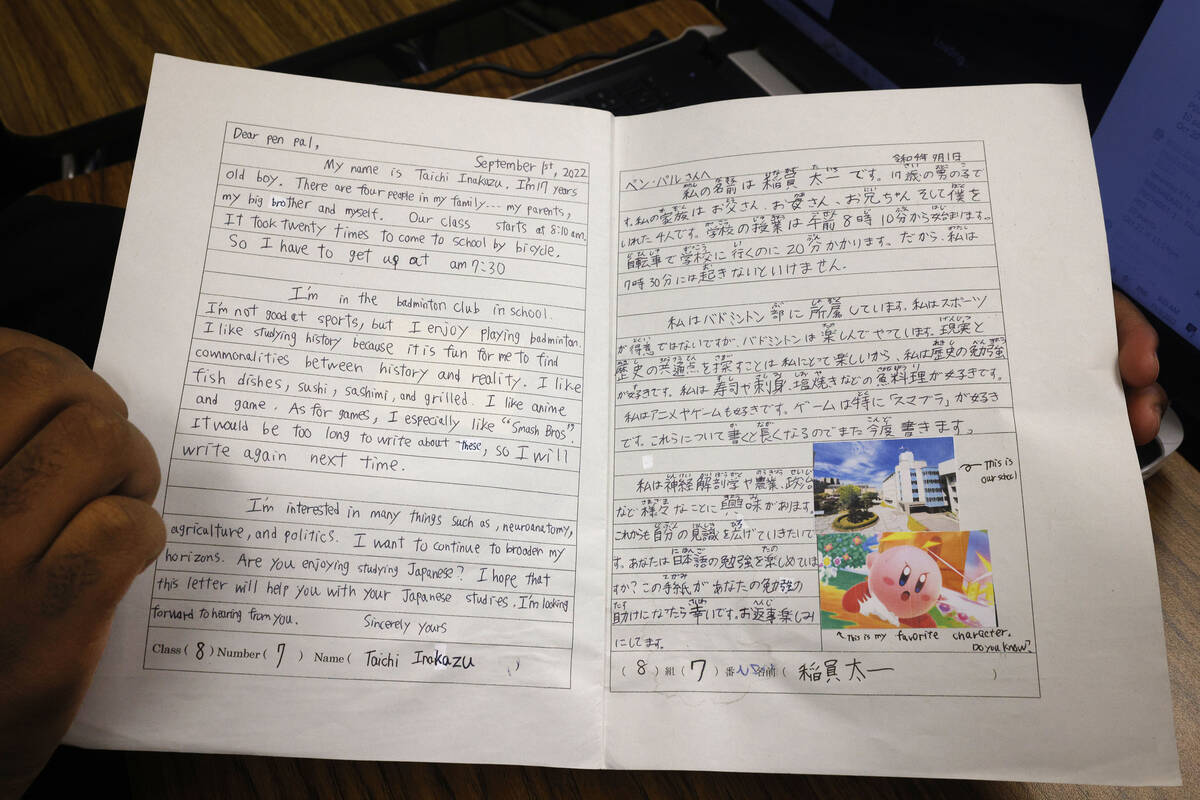 Dear pen pal,
September 1st, 2022
My name is Taichi Inakazu. I'm 17 years
old boy. There are four people in my family... my parents,
my big brother and myself. Our class starts at 8:10 am.
It took twenty times to come to school by bicycle.
So I have to get up at am 7:30
I'm in the badminton club in school.
I'm not good at sports, but I enjoy playing badminton.
I like studying history because it is fun for me to find
commonalities between history and reality. I like
fish dishes, sushi, sashimi, and grilled. I like anime
and game. As for games, I especially like "Smash Bros".
It would be too long to write about these, so I will
write again next time.
I'm interested in many things such as, neuroanatomy,
agriculture, and politics. I want to continue to broaden my
horizons. Are you enjoying studying Japanese? I hope that
this letter will help you with your Japanese studies. I'm looking
forward to hearing from you. Sincerely yours
Class ( 8 ) Number ( 7 ) Name ( Taichi Inakazu )
令和4年9月1日
ペン・パルさんへ
私の名前は稲員 太一です。17歳の男の子で
す。私の家族はお父さん、お母さん、お兄ちゃん そして僕を
いれた4人です。学校の授業は午前8時10分から始まります。
自転車で学校に行くのに20分かかります。だから、私は
7時30分には起きないといけません.
私はバドミントン部に所属しています。私はスポーツ
が得意ではないですが、バドミントンは楽しんでやっています。現実と
歴史の共通点を探すことは私にとって楽しいから、私は歴史の勉強
が好きです。私は寿司や刺身、塩焼きなどの魚料理が好きです。
私はアニメやゲームも好きです。ゲームは特に「スマブラ」が好き
です。これらについて書くと長くなるのでまた今度書きます。
私は神経解剖学や農業、政治
など様々なことに興味があります。
これからも自分の見識を広げていきたいで
す。あなたは日本語の勉強を楽しめていま
すか?この手紙があなたの勉強の
助けになったら幸いです。お返事楽しみ
にしてます。
This is
our school
This is my favorite character.
Do you know?
( 8 ) 組 ( 7 ) 番 名前 ( 稲員太一 )